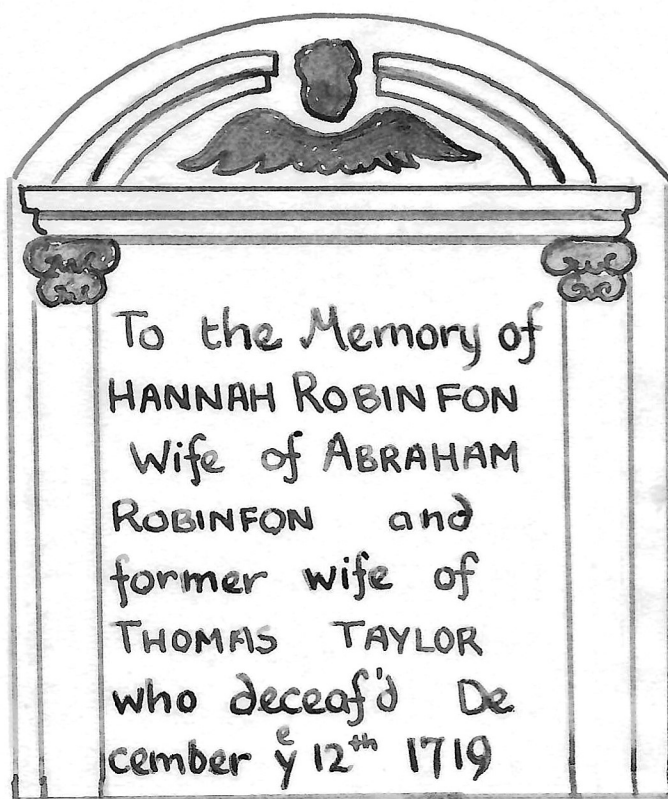 To the Memory of
HANNAH ROBINFON
Wife of ABRAHAM
ROBINFON and
former wife of
THOMAS TAYLOR
who deceaf'd De
cember yᵉ 12ᵗʰ 1719